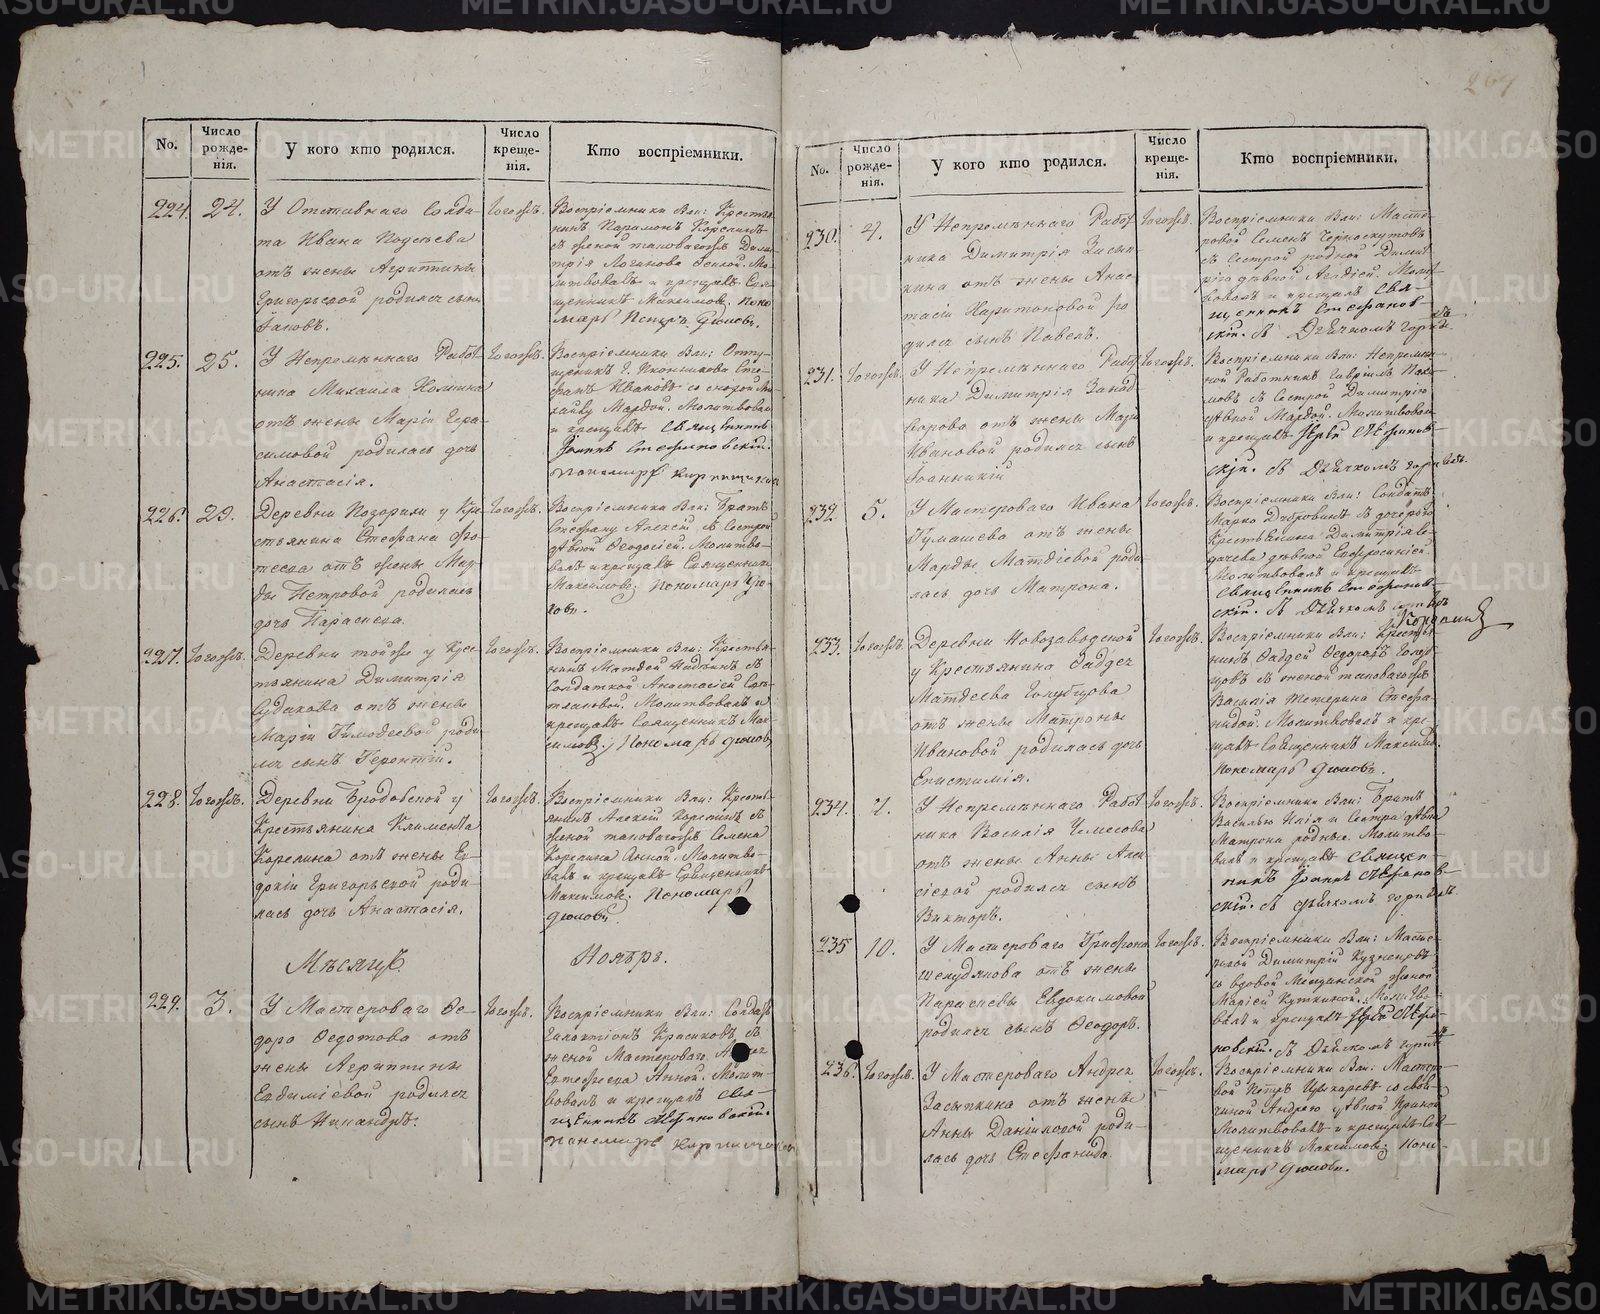 264
No.
Число рожде-нія.
У кого кто родился.
Число креще-нія.
Кто воспріемники.
224.
24.
У Отставнаго Солда-
та Ивана
отъ жены Агриппины
Григорьевой родился сынъ
Іаковъ.
тогожъ.
Воспріемники были: Крестья-
нинъ Парамонъ Корелинъ
съ женой таковагожъ Дими-
трія Логинова Мо-
литвовалъ и крещалъ Свя-
щенникъ Максимовъ. Поно-
марь Петръ
225.
25.
У Непремѣннаго Работ-
ника Михаила
отъ жены Маріи Гера-
симовой родилась дочь
Анастасія.
тогожъ.
Воспріемники были:
Сте-
фанъ Ивановъ со снохой
Марѳой. Молитвовалъ
и крещалъ Священникъ
Іоаннъ Стефановскій.
пономарь
226.
29.
Деревни у Кре-
стьянина Стефана
отъ жены Мар-
ѳы Петровой родилась
дочь Параскева.
тогожъ.
Воспріемники были: Братъ
Стефану Алексѣй съ Сестрой
дѣвкой Ѳеодосіей. Молитво-
валъ и крещалъ Священникъ
Максимовъ. Пономарь
227.
тогожъ.
Деревни тойже у Крес-
тьянина Димитрія
Судакова отъ жены
Маріи Тимоѳеевой роди-
лся сынъ Геронтій.
тогожъ.
Воспріемники были: Крестья-
нинъ Матѳей съ
Солдаткой Анастасіей
Молитвовалъ и
крещалъ Священникъ Мак-
симовъ. Пономарь
228.
тогожъ.
Деревни Бродовской у
Крестьянина Климента
Корелина отъ жены Ев-
докіи Григорьевой роди-
лась дочь Анастасія.
тогожъ.
Воспріемники были: Кресть-
янинъ Алексѣй Корелинъ съ
женой таковагожъ Семена
Корелина Анной. Молитво-
валъ и крещалъ Священникъ
Максимовъ. Пономарь
Мѣсяцъ
Ноябрь.
229.
3.
У Мастероваго Ѳе-
дора Ѳедотова отъ
жены Агриппины
Евдиміевой родился
сынъ Никандръ.
тогожъ.
Воспріемники были: Солдатъ
Галактіонъ Красиковъ съ
женой Мастероваго
Анной. Молит-
вовалъ и крещалъ Свя-
щенникъ Стефановскій.
пономарь
No.
Число рожде-нія.
У кого кто родился.
Число креще-нія.
Кто воспріемники.
230.
4.
У Непремѣннаго Работ-
ника Димитрія Засып-
кина отъ жены Анас-
тасіи Харитоновой ро-
дился сынъ Павелъ.
тогожъ.
Воспріемники были: Масте-
ровой Семенъ Черноскутовъ
съ Сестрой родной Димит-
рію дѣвкой Молит-
вовалъ и крещалъ Свя-
щенникъ Стефанов-
скій. съ Дьячкомъ
231.
тогожъ.
У Непремѣннаго Работ-
ника Димитрія
отъ жены Маріи
Ивановой родился сынъ
Іоанникій
тогожъ.
Воспріемники были: Непремѣн-
ной Работникъ Гавріилъ
съ Сестрой Димитрію
дѣвкой Марѳой. Молитвовалъ
и крещалъ Іерей Стефанов-
скій. съ Дьячкомъ
232
5.
У Мастероваго Ивана
Гумашева отъ жены
Марѳы Матѳіевой роди-
лась дочь Матрона.
тогожъ.
Воспріемники были: Солдатъ
Марко Дубровинъ съ дочерью
Крестьянина Димитрія
дѣвкой Евфросиніей.
Молитвовалъ и крещалъ
Священникъ Стефанов-
скій. съ Дьячкомъ
233.
тогожъ.
Деревни Новозаводской
у Крестьянина Ѳадѳея
Матѳеева Голубцова
отъ жены Матроны
Ивановой родилась дочь
Епистимія.
тогожъ.
Воспріемники были: Крестья-
нинъ Ѳадѳей Ѳедоровъ Голуб-
цовъ съ женой таковагожъ
Василія Тетерина Стефа-
нидой. Молитвовалъ и кре-
щалъ Священникъ Максимовъ.
Пономарь
234.
7.
У Непремѣннаго Работ-
ника Василія Чемесова
отъ жены Анны Алек-
сіевой родился сынъ
Викторъ.
тогожъ.
Воспріемники были: Братъ
Василью Илія и Сестра дѣвка
Матрона родные. Молитво-
валъ и крещалъ Священ-
никъ Іоаннъ Стефанов-
скій. съ дьячкомъ
235
10.
У Мастероваго Трифона
Шелудякова отъ жены
Параскевы Евдокимовой
родился сынъ Ѳеодоръ.
тогожъ.
Воспріемники были: Масте-
ровой Димитрій Кузнецовъ
съ вдовой Мещанской женой
Маріей Куткиной. Молитво-
валъ и крещалъ Іерей Стефа-
новскій. съ Дьячкомъ
236.
тогожъ.
У Мастероваго Андрея
Засыпкина отъ жены
Анны Даніиловой роди-
лась дочь Стефанида.
тогожъ.
Воспріемники были: Мастер-
овой Петръ Цыкаревъ со своя-
чиной Андрею дѣвкой Ириной
Молитвовалъ и крещалъ Свя-
щенникъ Максимовъ. Поно-
марь
METRIKI.GASO-URAL.RU